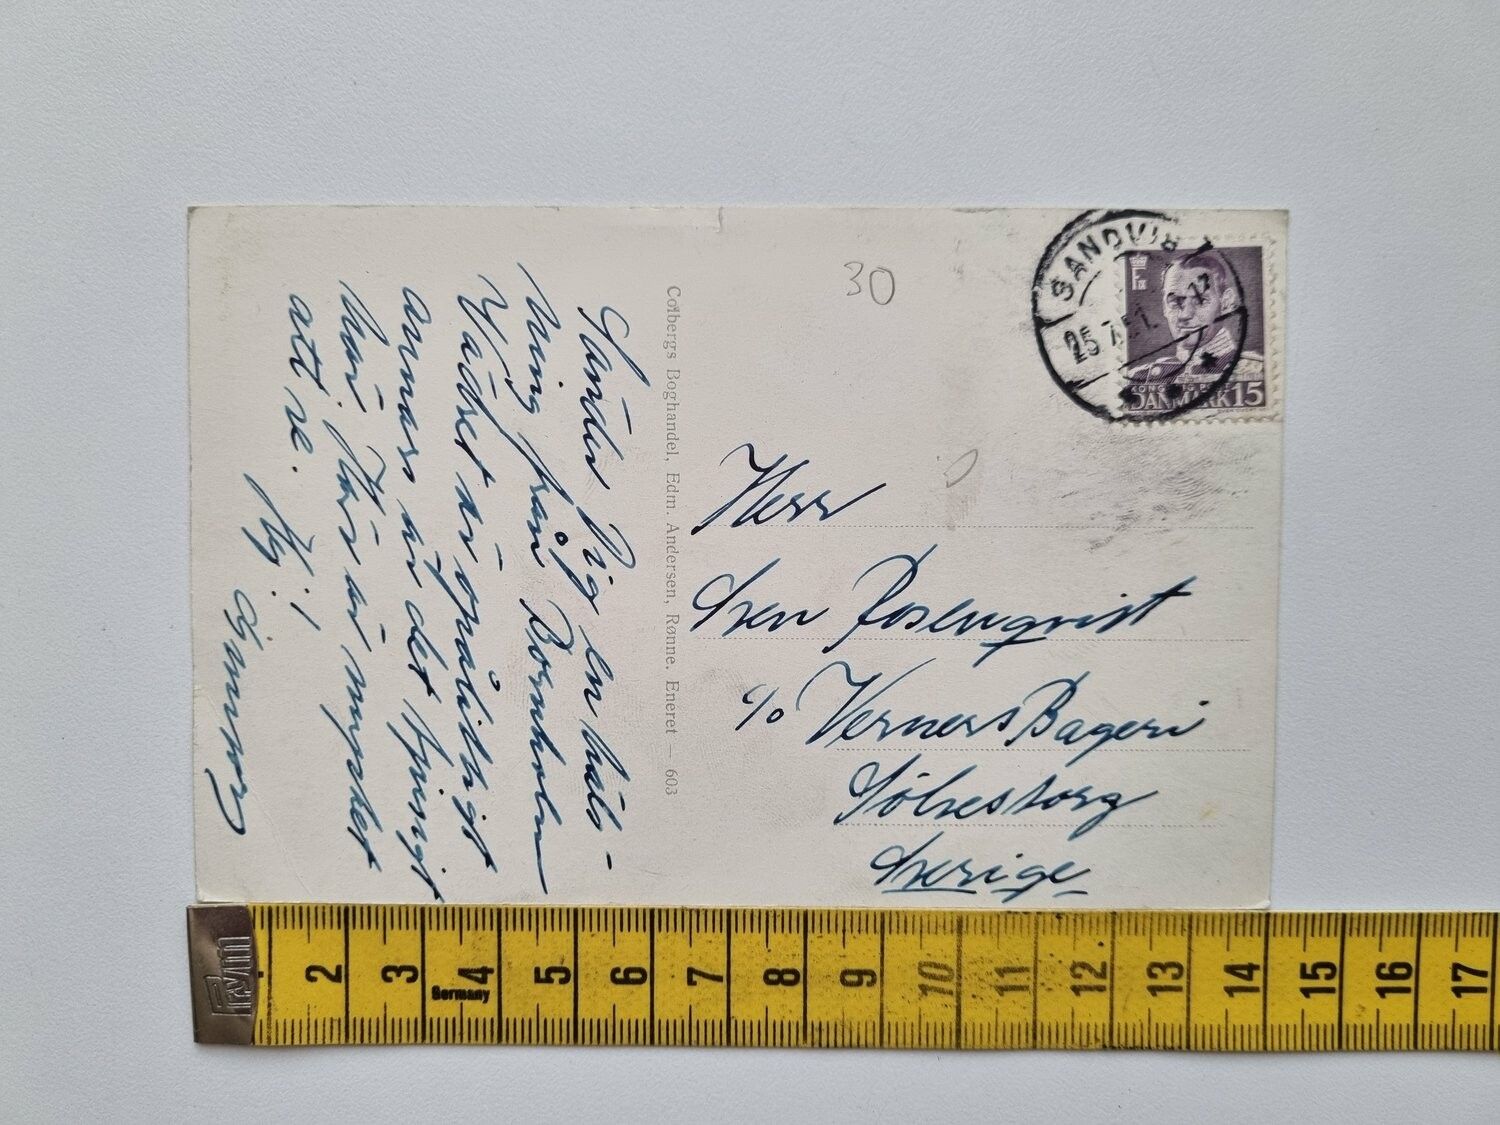 Sänder Dig en häls-
ning från Bornholm
Vädret är opålitligt
annars är det tjusigt
här. Här är mycket
att se.
Hej!
Gunvor
Colbergs Boghandel, Edm. Andersen, Rønne. Eneret — 603
30
SANDVIG
25.7.51. 17
F IX
KONG
DANMARK 15
Herr
Sven Rosenqvist
c/o Verners Bageri
Sölvesborg
Sverige
Prym
Germany
2 3 4 5 6 7 8 9 10 11 12 13 14 15 16 17